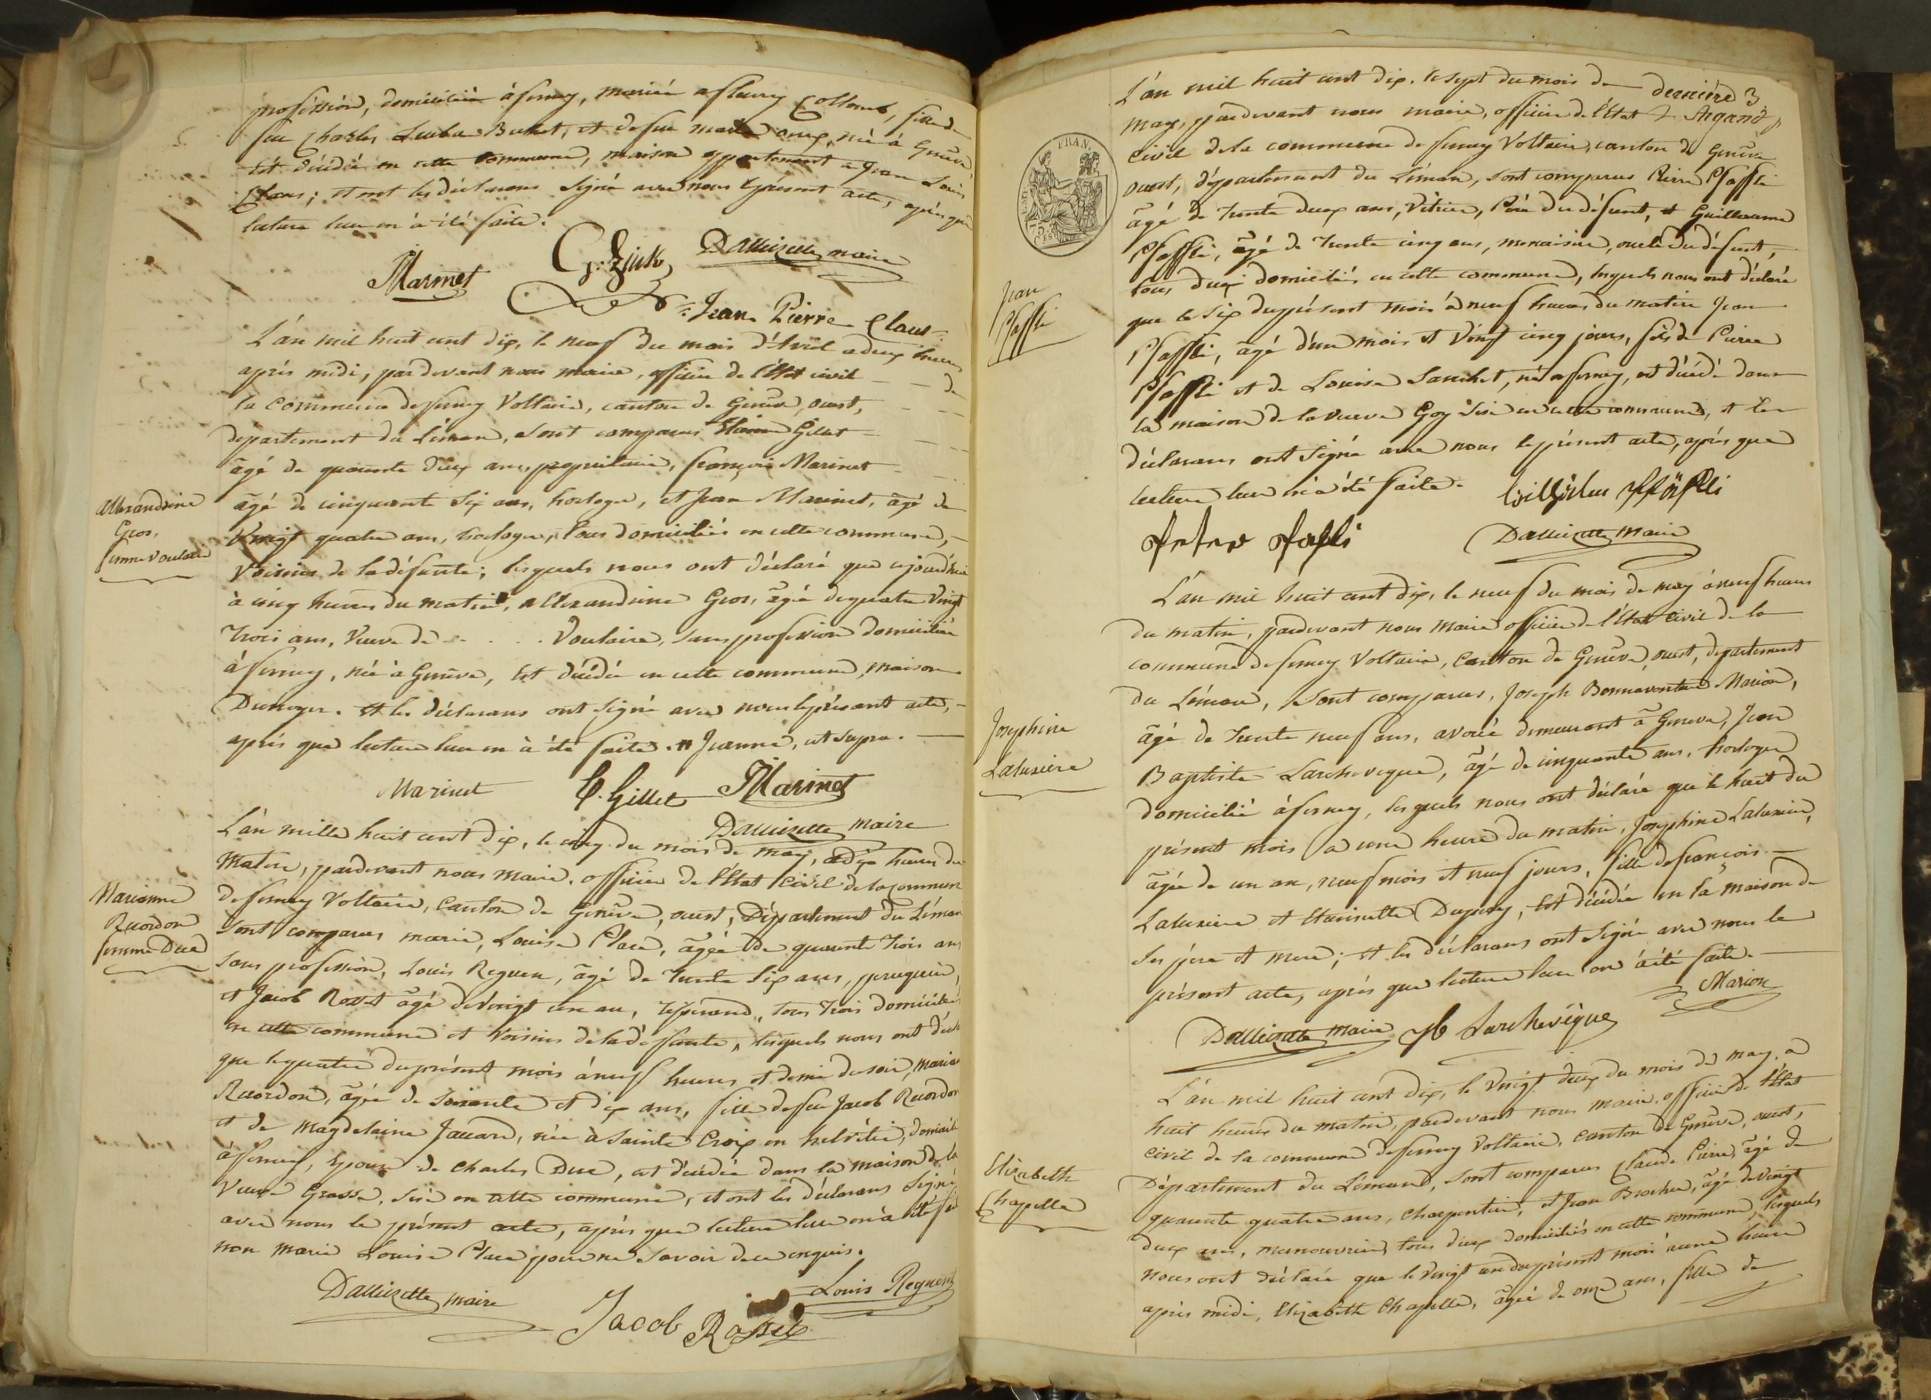 profession, domiciliée à ferney, mariée a fleury Collomb, fille de
feu Charles Buhet, et de feu née à Genève
Est décédée en cette Commune, maison appartenant a Jean Louis
; et ont les déclarans Signé avec nous le présent acte, après que
lecture leur en à été faite.
JMarinet
Dallizette maire
Jean Pierre Claus
L'an mil huit cent dix, le neuf du mois d'Avril a deux heures
après midi, pardevant nous maire, officier de l'état civil de
la Commune de ferney Voltaire, canton de Genève, ouest,
département du Léman, sont comparus Gillet
âgé de quarante deux ans, propriétaire, françois Marinet
Alexandrine
Gros,
femme Voulaire
âgé de cinquante six ans, horloger, et Jean Marinet, âgé de
Vingt quatre ans, horloger, tous domiciliés en cette commune,
Voisins de la défunte; lesquels nous ont déclaré que cejourdhui
à cinq heures du matin, Alexandrine Gros, âgée de quatre Vingt
trois ans, Veuve de . . . . Voulaire, sans profession domiciliée
à ferney, née à Genève, Est décédée en cette commune, maison
. Et les déclarans ont Signé avec nous le présent acte,
après que lecture leur en à été faite. Jeanne, ut supra.
Marinet
C. Gillet
JMarinet
Dallizette maire
L'an mille huit cent dix, le cinq du mois de may, à dix heures du
matin, pardevant nous maire, officier de l'Etat Civil de la commune
Marianne
Recordon
femme Duc
de ferney Voltaire, Canton de Genève, ouest, Département du Léman
Sont comparus marie, Louise Place, âgée de quarante trois ans
Sans profession, Louis Reguen, âgé de trente six ans, perruquier,
et Jacob Rosset âgé de vingt un an, tisserand, tous trois domiciliés
en cette commune et Voisins de la défunte, lesquels nous ont déclaré
que le quatre du présent mois à neuf heures et demie du soir, marianne
Recordon, âgée de soixante et dix ans, fille de feu Jacob Recordon
et de Magdelaine Jaccard, née à Sainte Croix en helvétie, domiciliée
à ferney, Epouse de Charles Duc, est décédée dans la maison de la
Veuve Grosse, Sise en cette commune, et ont les déclarans Signé
avec nous le présent acte, après que lecture leur en à été faite
non marie Louise Place pour ne savoir de ce enquis.
Dallizette maire
Louis Reguen
Jacob Rosset
dernière 3
Argand
L'an mil huit cent dix, le sept du mois de
may, pardevant nous maire, officier de l'Etat
civil de la commune de ferney Voltaire, canton de Genève
ouest, département du Léman, sont comparus Pierre Pfaffli
âgé de trente deux ans, Vitrier, Père du défunt, et Guillaume
Pfaffli, âgé de trente cinq ans, menuisier, oncle du défunt,
tous deux domiciliés en cette commune, lesquels nous ont déclaré
Jean
Pfaffli
que le six du présent mois à neuf heures du matin Jean
Pfaffli, âgé d'un mois et Vingt cinq jours, fils de Pierre
Pfaffli et de Louise Sanchet, né à ferney, est décédé dans
la maison de la veuve Goy Sise en cette commune, et les
déclarans ont Signé avec nous le présent acte, après que
lecture leur en à été faite.
Wilhelm Pfäffli
Peter Pfafli
Dallizette maire
L'an mil huit cent dix, le neuf du mois de may à neuf heures
du matin, pardevant nous Maire officier de l'état Civil de la
commune de ferney Voltaire, Canton de Genève, ouest, département
du Léman, Sont comparus, Joseph Bonnaventure Marion,
Josephine
Laluxiere
âgé de trente neuf ans, avoué demeurant à Geneve, Jean
Baptiste Larchevêque, âgé de cinquante ans, horloger
domicilié à ferney, lesquels nous ont déclaré que le huit du
présent mois à une heure du matin, Josephine Laluxiere,
âgée de un an, neuf mois et neuf jours, fille de françois
Laluxiere et Etiennette Dupuy, est décédée en la maison de
Ses père et mere; et les déclarans ont Signé avec nous le
présent acte, après que lecture leur en à été faite.
Marion
Dallizette maire
Jb Larchevêque
L'an mil huit cent dix, le vingt deux du mois de may, à
huit heures du matin, pardevant nous maire, officier de l'état
Elizabeth
Chapelle
civil de la commune de ferney Voltaire, canton de Genève, ouest,
Département du Léman, sont comparus Claude Pierre, âgé de
quarante quatre ans, charpentier, et Jean Brochu, âgé de vingt
deux ans, manouvrier, tous deux domiciliés en cette commune, lesquels
nous ont déclaré que le vingt un du présent mois à une heure
après midi, Elizabeth Chapelle, âgée de onze ans, fille de